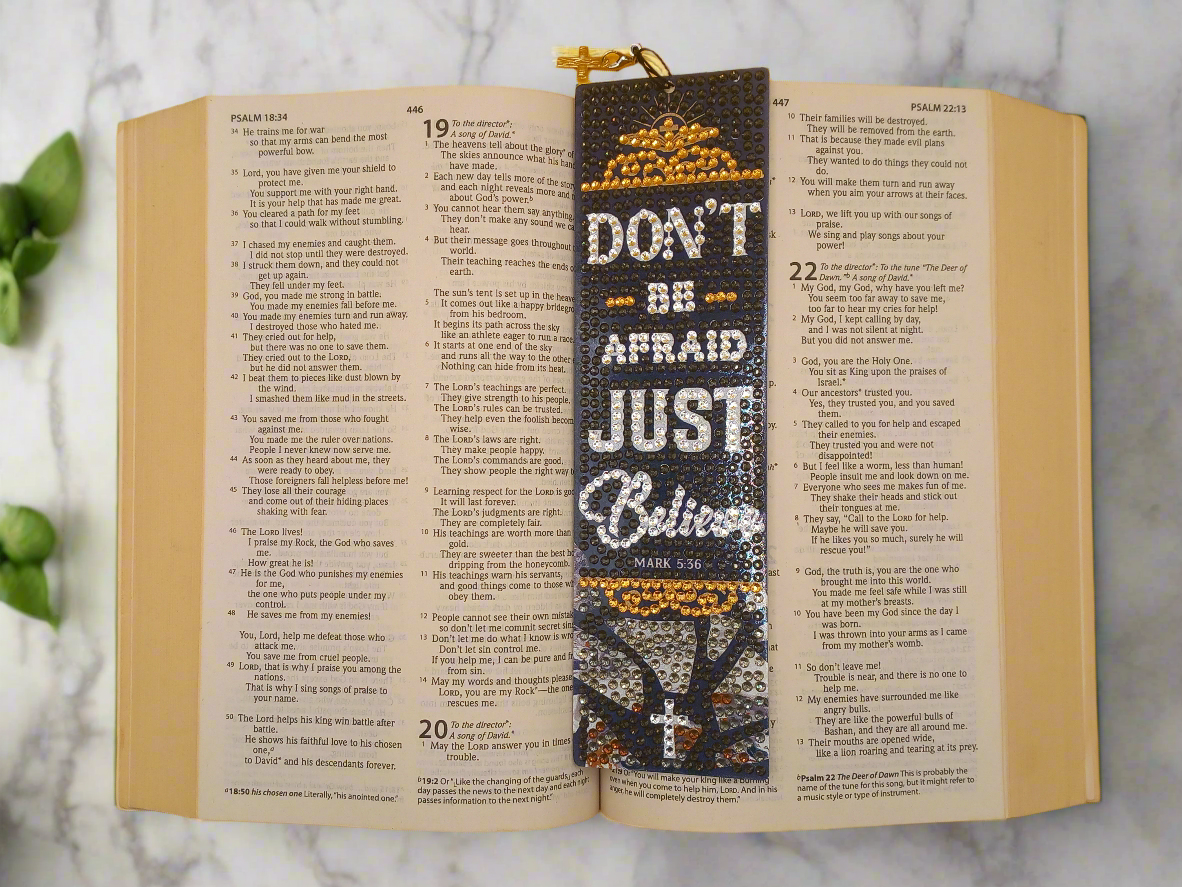 PSALM 18:34
34 He trains me for war
so that my arms can bend the most
powerful bow.
35 Lord, you have given me your shield to
protect me.
You support me with your right hand.
It is your help that has made me great.
36 You cleared a path for my feet
so that I could walk without stumbling.
37 I chased my enemies and caught them.
I did not stop until they were destroyed.
38 I struck them down, and they could not
get up again.
They fell under my feet.
39 God, you made me strong in battle.
You made my enemies fall before me.
40 You made my enemies turn and run away.
I destroyed those who hated me.
41 They cried out for help,
but there was no one to save them.
They cried out to the LORD,
but he did not answer them.
42 I beat them to pieces like dust blown by
the wind.
I smashed them like mud in the streets.
43 You saved me from those who fought
against me.
You made me the ruler over nations.
People I never knew now serve me.
44 As soon as they heard about me, they
were ready to obey.
Those foreigners fall helpless before me!
45 They lose all their courage
and come out of their hiding places
shaking with fear.
46 The LORD lives!
I praise my Rock, the God who saves
me.
How great he is!
47 He is the God who punishes my enemies
for me,
the one who puts people under my
control.
48 He saves me from my enemies!
You, Lord, help me defeat those who
attack me.
You save me from cruel people.
49 LORD, that is why I praise you among the
nations.
That is why I sing songs of praise to
your name.
50 The Lord helps his king win battle after
battle.
He shows his faithful love to his chosen
one,a
to David* and his descendants forever.
a18:50 his chosen one Literally, "his anointed one."
446
19 To the director*:
A song of David.*
1 The heavens tell about the glory* of
The skies announce what his
have made.
2 Each new day tells more of the
and each night reveals more and
about God's power.b
3 You cannot hear them say anything.
They don't make any sound we
hear.
4 But their message goes throughout
world.
Their teaching reaches the ends
earth.
The sun's tent is set up in the
5 It comes out like a happy
from his bedroom.
It begins its path across the sky
like an athlete eager to run a race.
6 It starts at one end of the sky
and runs all the way to the other
Nothing can hide from its heat.
7 The LORD's teachings are perfect.
They give strength to his people.
The LORD's rules can be trusted.
They help even the foolish
wise.
8 The LORD's laws are right.
They make people happy.
The LORD's commands are good.
They show people the right way
9 Learning respect for the LORD is
It will last forever.
The LORD's judgments are right.
They are completely fair.
10 His teachings are worth more than
gold.
They are sweeter than the best
dripping from the honeycomb.
11 His teachings warn his servants,
and good things come to those
obey them.
12 People cannot see their own
so don't let me commit secret
13 Don't let me do what I know is
Don't let sin control me.
If you help me, I can be pure and
from sin.
14 May my words and thoughts please
LORD, you are my Rock*—the one
rescues me.
20 To the director*:
A song of David.*
1 May the LORD answer you in times
trouble.
b19:2 Or "Like the changing of the guards, each
day passes the news to the next day and each night
passes information to the next night."
DON'T
BE
AFRAID
JUST
Believe
MARK 5:36
Or "You will make your king like a burning
when you come to help him, LORD. And in his
anger, he will completely destroy them."
447
PSALM 22:13
10 Their families will be destroyed.
They will be removed from the earth.
11 That is because they made evil plans
against you.
They wanted to do things they could not
do.
12 You will make them turn and run away
when you aim your arrows at their faces.
13 LORD, we lift you up with our songs of
praise.
We sing and play songs about your
power!
22 To the director*: To the tune "The Deer of
Dawn."b A song of David.*
1 My God, my God, why have you left me?
You seem too far away to save me,
too far to hear my cries for help!
2 My God, I kept calling by day,
and I was not silent at night.
But you did not answer me.
3 God, you are the Holy One.
You sit as King upon the praises of
Israel.*
4 Our ancestors* trusted you.
Yes, they trusted you, and you saved
them.
5 They called to you for help and escaped
their enemies.
They trusted you and were not
disappointed!
6 But I feel like a worm, less than human!
People insult me and look down on me.
7 Everyone who sees me makes fun of me.
They shake their heads and stick out
their tongues at me.
8 They say, "Call to the LORD for help.
Maybe he will save you.
If he likes you so much, surely he will
rescue you!"
9 God, the truth is, you are the one who
brought me into this world.
You made me feel safe while I was still
at my mother's breasts.
10 You have been my God since the day I
was born.
I was thrown into your arms as I came
from my mother's womb.
11 So don't leave me!
Trouble is near, and there is no one to
help me.
12 My enemies have surrounded me like
angry bulls.
They are like the powerful bulls of
Bashan, and they are all around me.
13 Their mouths are opened wide,
like a lion roaring and tearing at its prey.
bPsalm 22 The Deer of Dawn This is probably the
name of the tune for this song, but it might refer to
a music style or type of instrument.